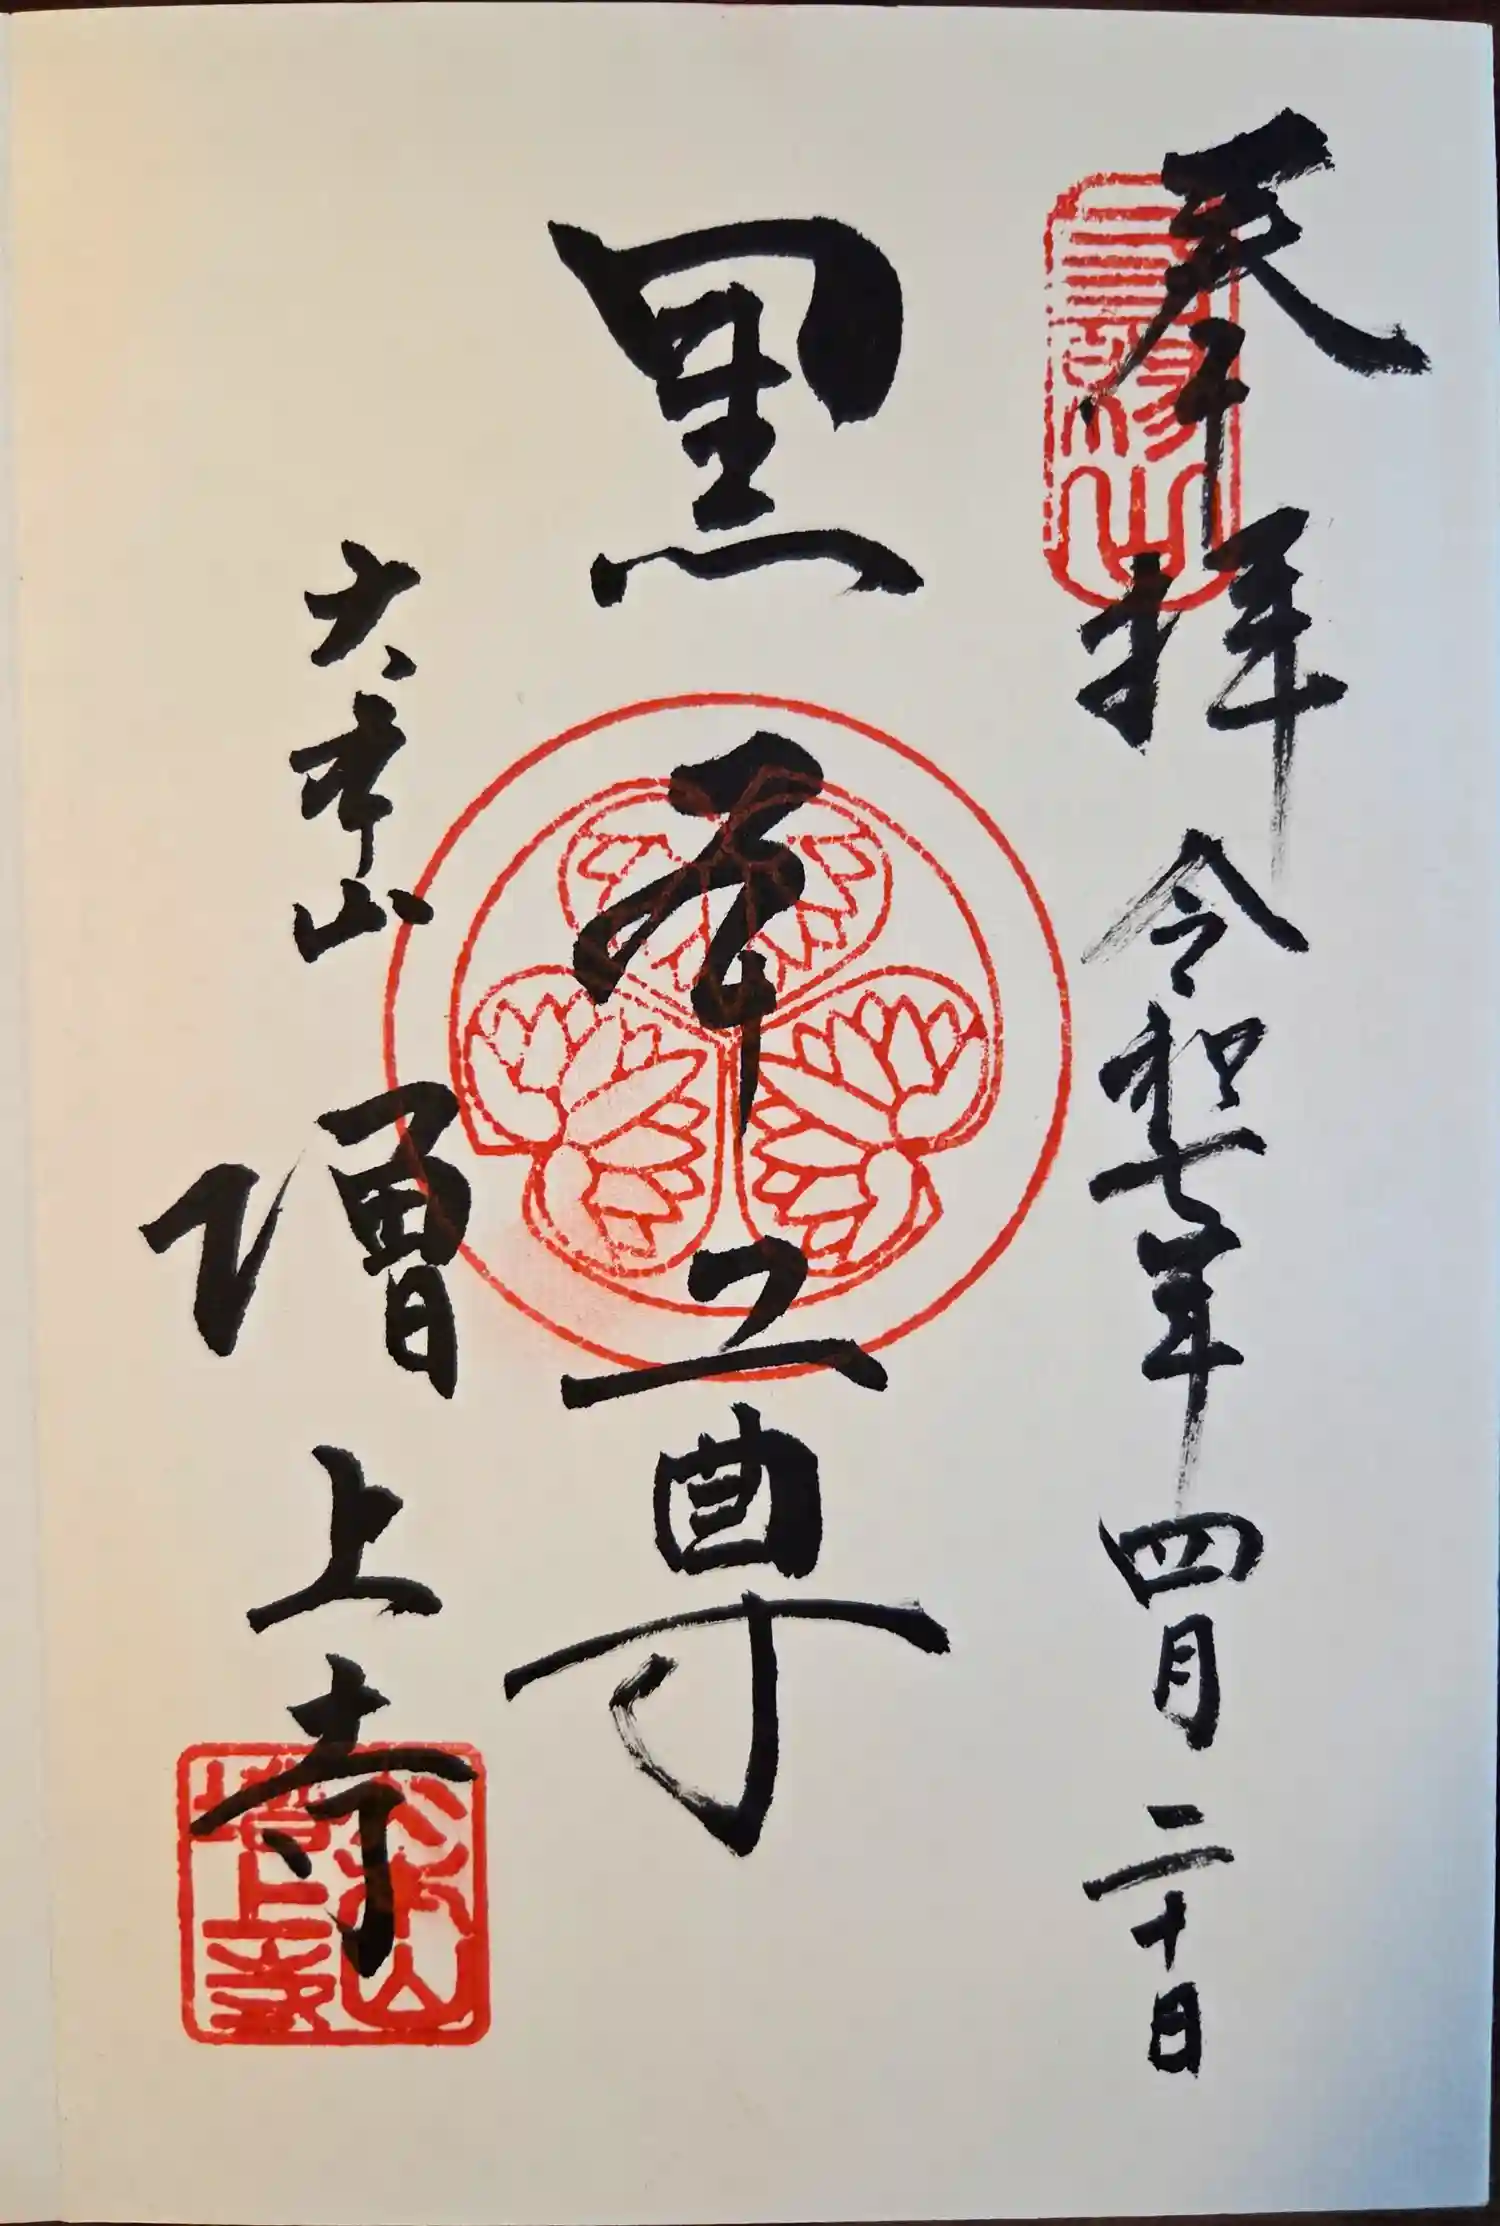 奉拝 令和七年四月二十日
三縁山
黒本尊
大本山 増上寺
大本山
増上寺